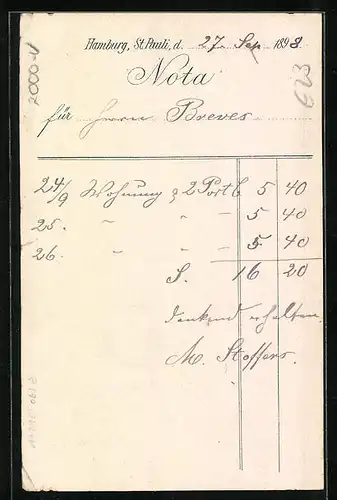 Hamburg, St. Pauli, d. 27. Sep 1898.
Nota
für Herrn Breves
24/9 Wohnung & 2 Port C 5 40
25. " " 5 40
26. " " 5 40
S. 16 20
dankend erhalten.
M. Stoffers.